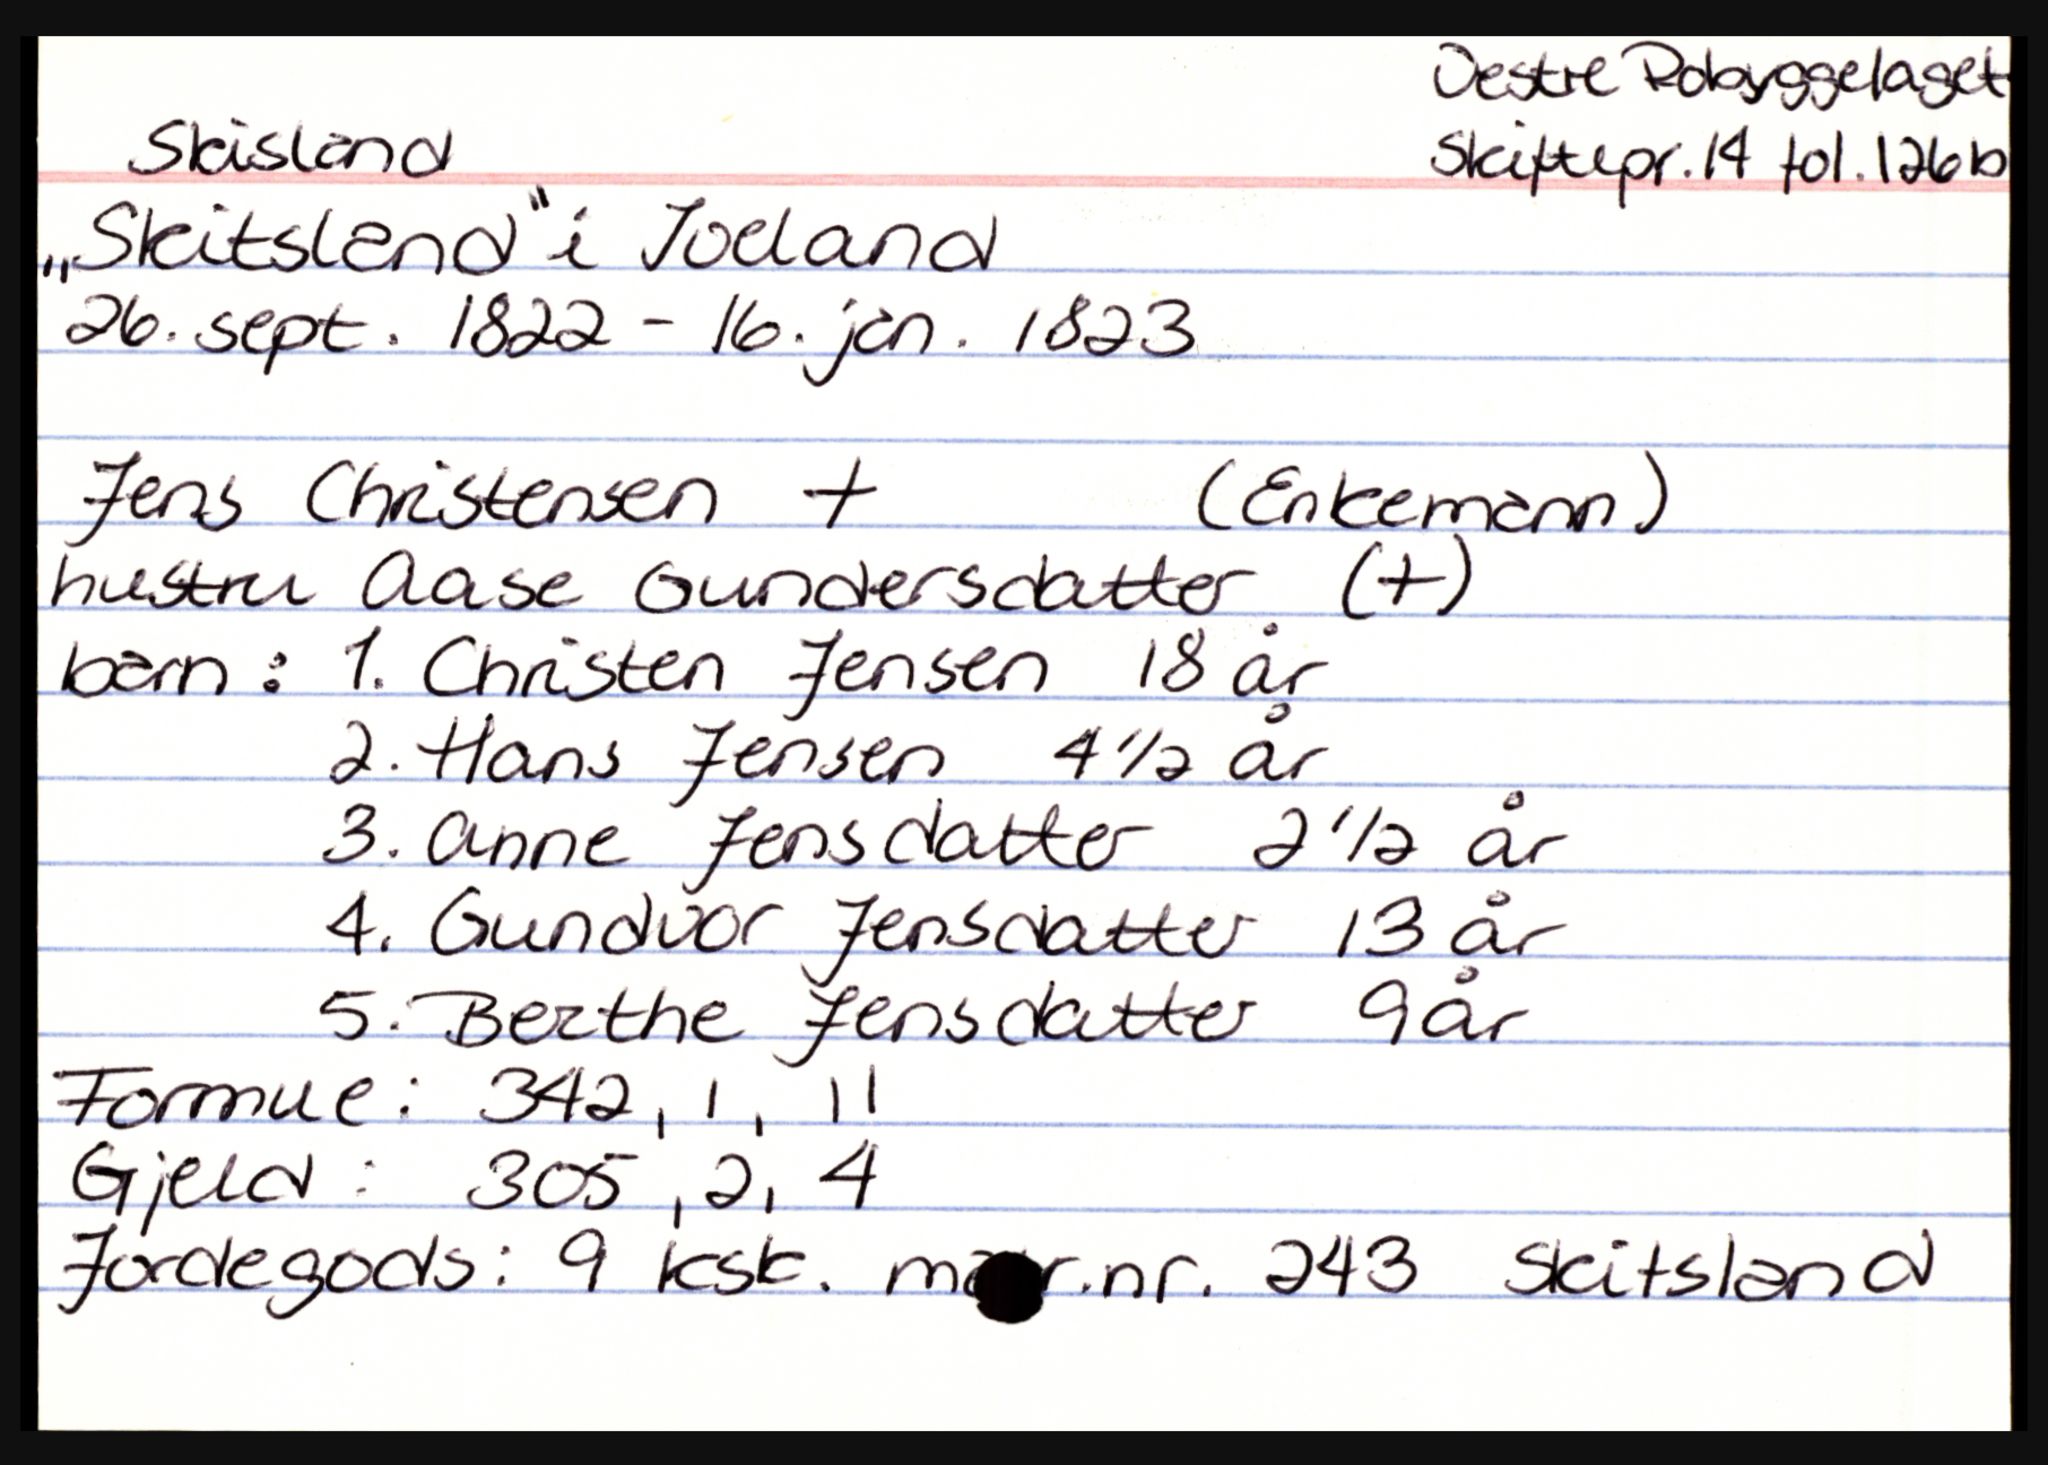 Vestre Robyggelaget
Skisland Skiftepr. 14 fol. 126 b
„Skitsland" i Iveland
26. sept. 1822 - 16. jan. 1823
Jens Christensen + (Enkemann)
hustru Aase Gundersdatter (+)
barn: 1. Christen Jensen 18 år
2. Hans Jensen 4 1/2 år
3. Anne Jensdatter 2 1/2 år
4. Gundvor Jensdatter 13 år
5. Berthe Jensdatter 9 år
Formue: 342, 1, 11
Gjeld: 305, 2, 4
Jordegods: 9 ksk. matr.nr. 243 Skitsland